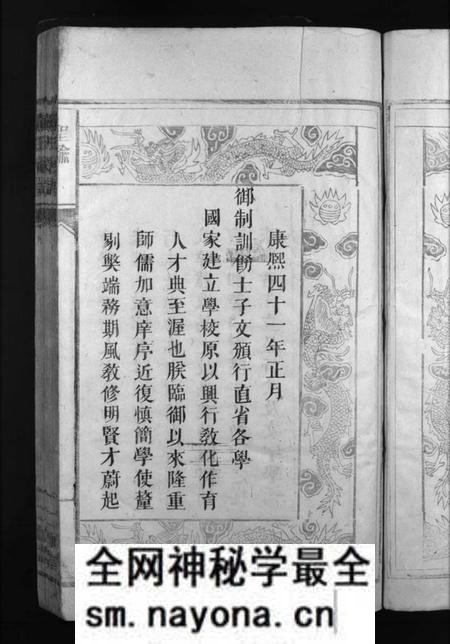 康熙四十一年正月
御制訓飭士子文頒行直省各學
國家建立學校原以興行教化作育
人才典至渥也朕臨御以來隆重
師儒加意庠序近復慎簡學使釐
剔弊端務期風教修明賢才蔚起
聖諭
全网神秘学最全
sm.nayona.cn